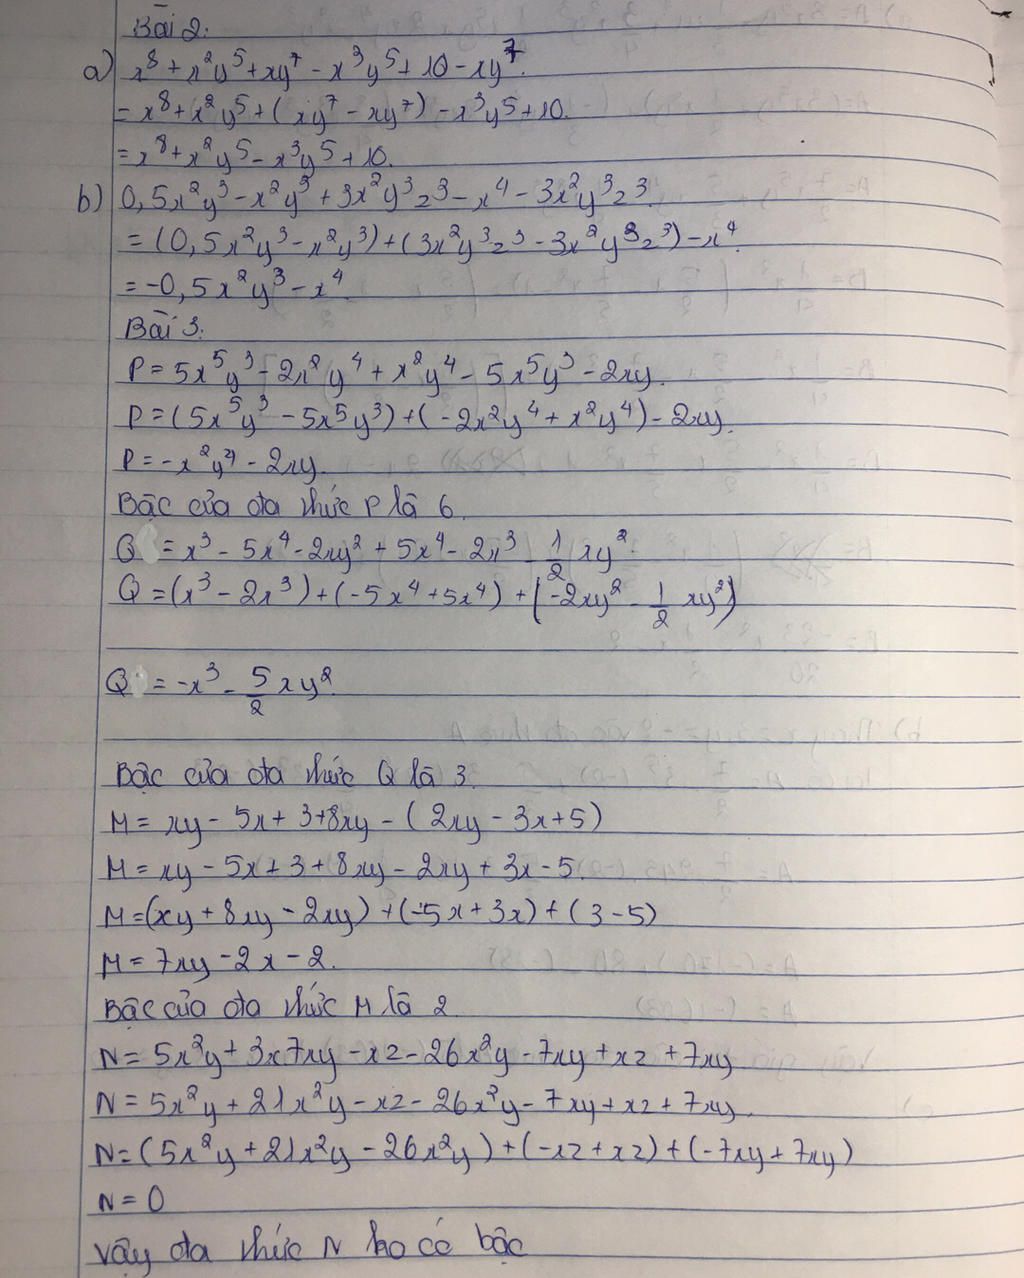 Bài 2:
a) x⁸ + x²y⁵ + xy⁷ - x³y⁵ + 10 - xy⁷.
= x⁸ + x²y⁵ + (xy⁷ - xy⁷) - x³y⁵ + 10.
= x⁸ + x²y⁵ - x³y⁵ + 10.
b) 0,5x²y³ - x²y³ + 3x²y³z³ - x⁴ - 3x²y³z³.
= (0,5x²y³ - x²y³) + (3x²y³z³ - 3x²y³z³) - x⁴.
= -0,5x²y³ - x⁴.
Bài 3:
P = 5x⁵y³ - 2x²y⁴ + x²y⁴ - 5x⁵y³ - 2xy.
P = (5x⁵y³ - 5x⁵y³) + (-2x²y⁴ + x²y⁴) - 2xy.
P = -x²y⁴ - 2xy.
Bậc của đa thức P là 6.
Q = x³ - 5x⁴ - 2xy² + 5x⁴ - 2x³ - 1/2 xy².
Q = (x³ - 2x³) + (-5x⁴ + 5x⁴) + (-2xy² - 1/2 xy²)
Q = -x³ - 5/2 xy².
Bậc của đa thức Q là 3.
M = xy - 5x + 3 + 8xy - (2xy - 3x + 5)
M = xy - 5x + 3 + 8xy - 2xy + 3x - 5.
M = (xy + 8xy - 2xy) + (-5x + 3x) + (3 - 5)
M = 7xy - 2x - 2.
Bậc của đa thức M là 2
N = 5x²y + 3x7xy - xz - 26x²y - 7xy + xz + 7xy
N = 5x²y + 21x²y - xz - 26x²y - 7xy + xz + 7xy.
N = (5x²y + 21x²y - 26x²y) + (-xz + xz) + (-7xy + 7xy)
N = 0
Vậy đa thức N ko có bậc